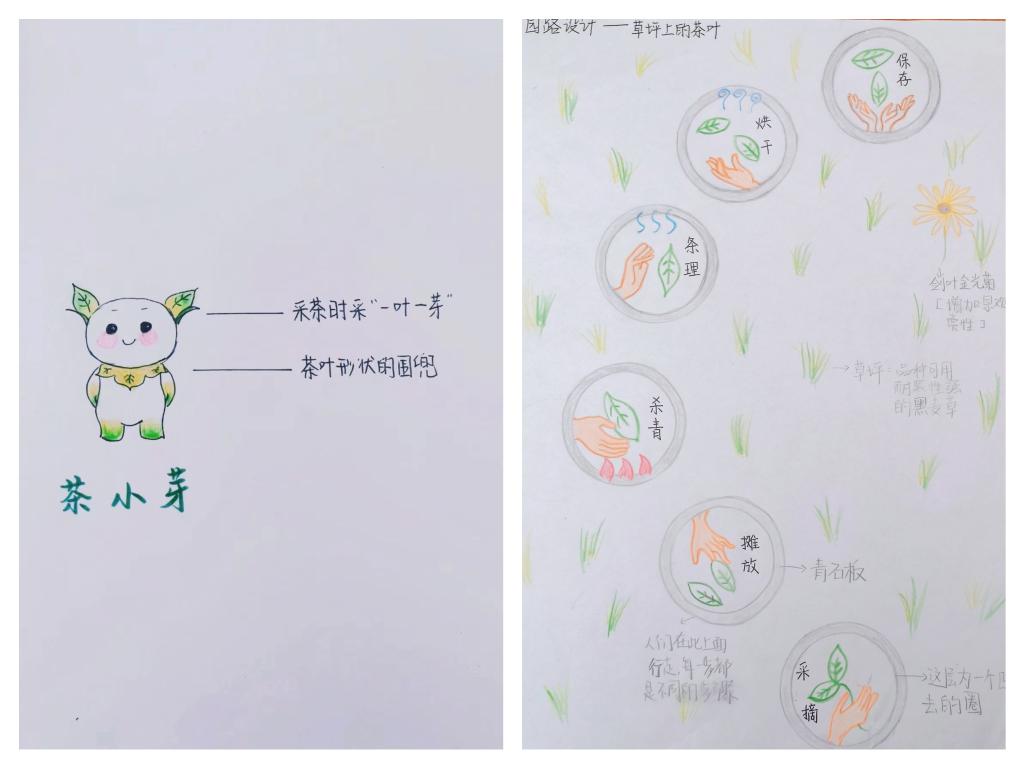 采茶时采"一叶一芽"
茶叶形状的围兜
茶小芽
园路设计——草坪上的茶叶
保
存
烘
干
条
理
剑叶金光菊
[增加景观
赏性]
草坪:品种可用
耐旱性强
的黑麦草
杀
青
摊
放
青石板
人们在此上面
行走,每一步都
是不同的步骤
采
摘
这层为一个凹
去的圈